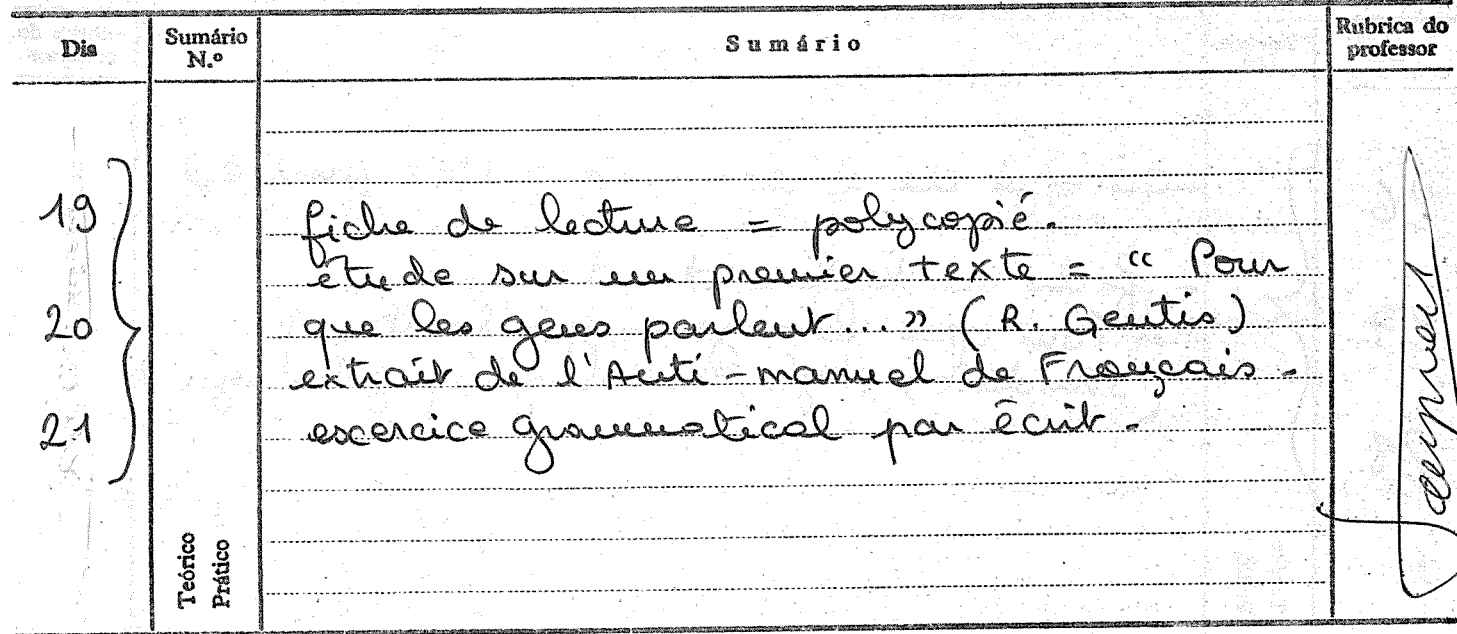 Dia
Sumário N.º
Sumário
Rubrica do professor
19
fiche de lecture = polycopié.
étude sur un premier texte = " Pour
20
que les gens parlent... " (R. Gentis)
extrait de l'Anti-manuel de Français -
21
excercice grammatical par écrit -
Teórico
Prático